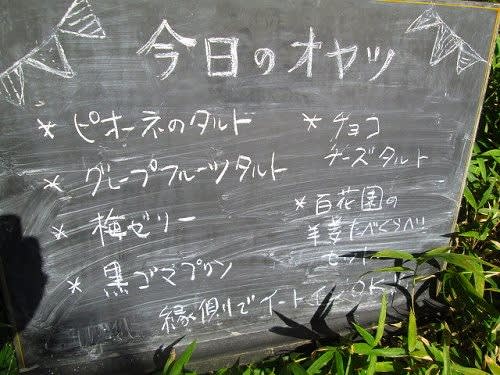 今日のオヤツ
* ピオーネのタルト
* グレープフルーツタルト
* 梅ゼリー
* 黒ゴマプリン
* チョコ
チーズタルト
* 百花園の
羊羹たべくらべ!!
セット
縁側でイートインOK